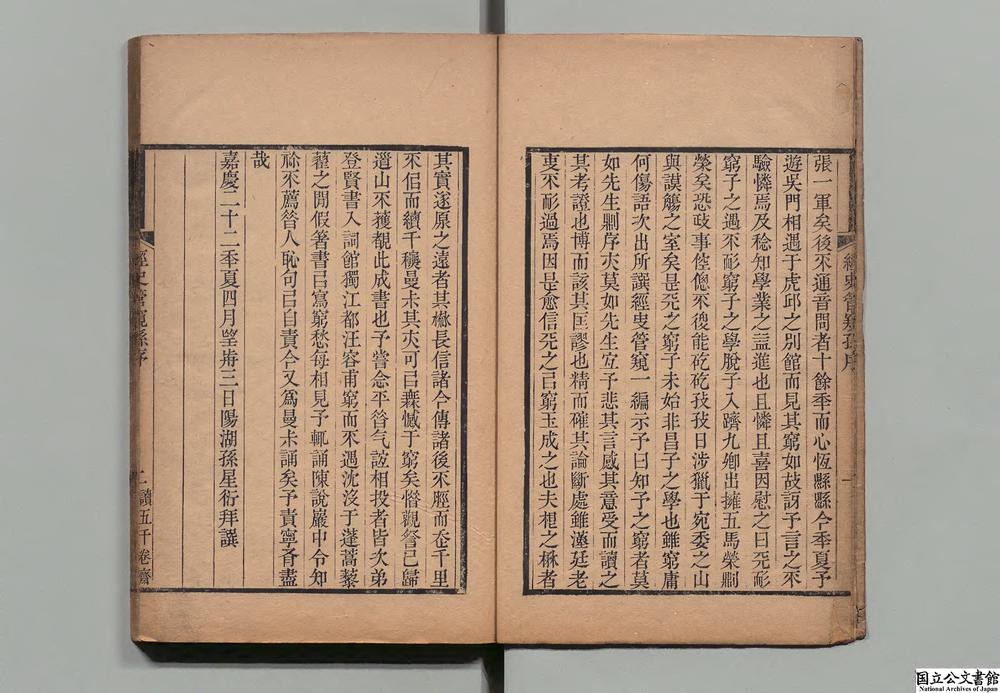 張一軍矣後不通音問者十餘年而心恆縣縣今年夏予
遊吳門相遇于虎邱之別館而見其窮如故訝予言之不
驗憐焉及稔知學業之益進也且憐且喜因慰之曰天耐
窮子之遇不耐窮子之學脫子入躋九卿出擁五馬榮剬
榮矣恐跂事倥傯不復能矻矻孜孜日涉獵于宛委之山
與謨觴之室矣是天之窮子未始非昌子之學也雖窮庸
何傷語次出所譔經史管窺一編示予曰知予之窮者莫
如先生剬序夾莫如先生宐予悲其言感其意受而讀之
其考證也博而該其匡謬也精而確其論斷處雖漢廷老
吏不耐過焉因是愈信天之㠯窮玉成之也夫相之楙者
其實遂原之遠者其㳅長信諸今傳諸後不脛而走千里
不侶而續千穮曼卡其夾可㠯無憾于窮矣惜觀詧已歸
道山不獲覩此成書也予嘗念平昔气誼相投者皆次弟
登賢書入詞館獨江都汪容甫窮而不遇沈沒于蓬蒿藜
藿之閒假箸書㠯寫窮愁每相見予輒誦陳說巖中令知
㑣不薦昝人恥句㠯自責今又為曼卡誦矣予責寧有盡
哉
嘉慶二十二年夏四月望歬三日陽湖孫星衍拜譔
經史管窺孫序
一
經史管窺孫序
二
讀五千卷齋
国立公文書館
National Archives of Japan